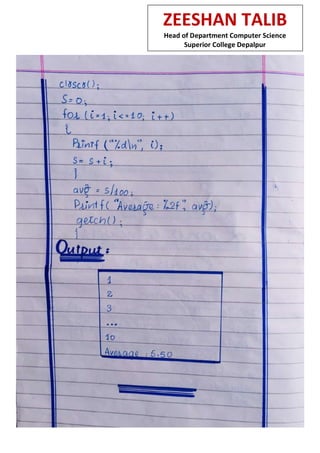 ZEESHAN TALIB
Head of Department Computer Science
Superior College Depalpur
clrscr();
S=0;
for (i=1; i<=10; i++)
{
Printf ("%d\n", i);
s= s+i;
}
avg = s/100;
Printf( "Average : %2f", avg);
getch();
}
Output:
1
2
3
...
10
Average : 5.50